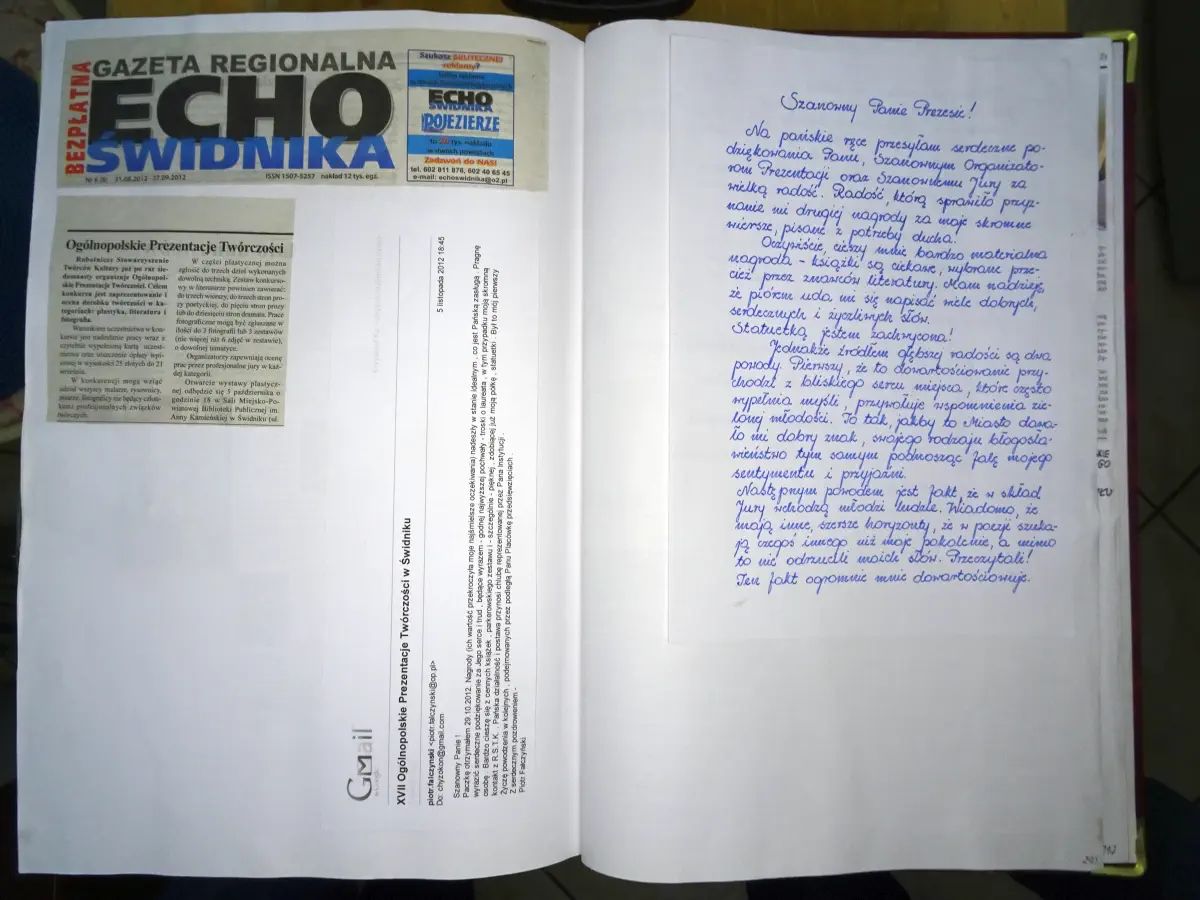 BEZPŁATNA
GAZETA REGIONALNA
ECHO
ŚWIDNIKA
31.08.2012 - 27.09.2012
ISSN 1507-5257 nakład 12 tys. egz.
Szukasz SKUTECZNEJ
reklamy?
ECHO
ŚWIDNIKA
POJEZIERZE
tys. nakładu
w dwóch powiatach
Zadzwoń do NAS!
tel. 602 811 876, 602 40 65 45
e-mail: echoswidnika@o2.pl
Ogólnopolskie Prezentacje Twórczości
Robotnicze Stowarzyszenie
Twórców Kultury już po raz sie-
demnasty organizuje Ogólnopol-
skie Prezentacje Twórczości. Celem
konkursu jest zaprezentowanie i
ocena dorobku twórczości w ka-
tegoriach: plastyka, literatura i
fotografia.
Warunkiem uczestnictwa w kon-
kursie jest nadesłanie pracy wraz z
czytelnie wypełnioną kartą uczest-
nictwa oraz uiszczenie opłaty wpi-
sowej w wysokości 25 złotych do 21
września.
W konkurencji mogą wziąć
udział wszyscy malarze, rysownicy,
pisarze, fotograficy nie będący człon-
kami profesjonalnych związków
twórczych.
W części plastycznej można
zgłosić do trzech dzieł wykonanych
dowolną techniką. Zestaw konkurso-
wy w literaturze powinien zawierać:
do trzech wierszy, do trzech stron pro-
zy poetyckiej, do pięciu stron prozy
lub do dziesięciu stron dramatu. Prace
fotograficzne mogą być zgłaszane w
ilości do 3 fotografii lub 3 zestawów
(nie więcej niż 6 zdjęć w zestawie),
o dowolnej tematyce.
Organizatorzy zapewniają ocenę
prac przez profesjonalne jury w każ-
dej kategorii.
Otwarcie wystawy plastycz-
nej odbędzie się 5 października o
godzinie 18 w Sali Miejsko-Po-
wiatowej Biblioteki Publicznej im.
Anny Kamieńskiej w Świdniku (ul.
GMail
XVII Ogólnopolskie Prezentacje Twórczości w Świdniku
piotr.falczynski <piotr.falczynski@op.pl>
5 listopada 2012 18:45
Do: chyzokon@gmail.com
Szanowny Panie !
Paczkę otrzymałem 29.10.2012. Nagrody (ich wartość przekroczyła moje najśmielsze oczekiwania) nadeszły w stanie idealnym , co jest Pańską zasługą . Pragnę
wyrazić serdeczne podziękowanie za Jego serce i trud , będące wyrazem - godnej najwyższej pochwały - troski o laureata , w tym przypadku moją skromną
osobę . Bardzo cieszę się z cennych książek , parkerowskiego zestawu i - szczególnie - pięknej , zdobiącej już moją półkę , statuetki . Był to mój pierwszy
kontakt z R.S.T.K. . Pańska działalność i postawa przynosi chlubę reprezentowanej przez Pana Instytucji .
Życzę powodzenia w kolejnych , podejmowanych przez podległą Panu Placówkę przedsięwzięciach .
Z serdecznym pozdrowieniem -
Piotr Falczyński
Szanowny Panie Prezesie!
Na pańskie ręce przesyłam serdeczne po-
dziękowania Panu, Szanownym Organizato-
rom Prezentacji oraz Szanownemu Jury za
wielką radość. Radość, którą sprawiło przyz-
nanie mi drugiej nagrody za moje skromne
wiersze, pisane z potrzeby ducha.
Oczywiście, cieszy mnie bardzo materialna
nagroda - książki są ciekawe, wybrane prze-
cież przez znawców literatury. Mam nadzieję,
że piórem uda mi się napisać wiele dobrych,
serdecznych i życzliwych słów.
Statuetką jestem zachwycona!
Jednakże źródłem głębszej radości są dwa
powody. Pierwszy, że to dowartościowanie przy-
chodzi z bliskiego sercu miejsca, które często
wypełnia myśli, przywołuje wspomnienia zie-
lonej młodości. To tak, jakby to Miasto dawa-
ło mi dobry znak, swojego rodzaju błogosła-
wieństwo tym samym podnosząc falę mojego
sentymentu i przyjaźni.
Następnym powodem jest fakt, że w skład
Jury wchodzą młodzi ludzie. Wiadomo, że
mają inne, szersze horyzonty, że w poezji szuka-
ją czegoś innego niż moje pokolenie, a mimo
to nie odrzucili moich słów. Przeczytali!
Ten fakt ogromnie mnie dowartościowuje.